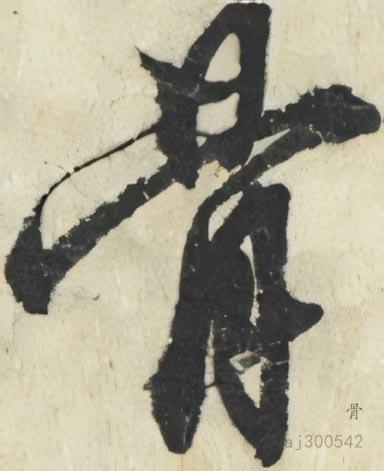 骨
骨
aj300542